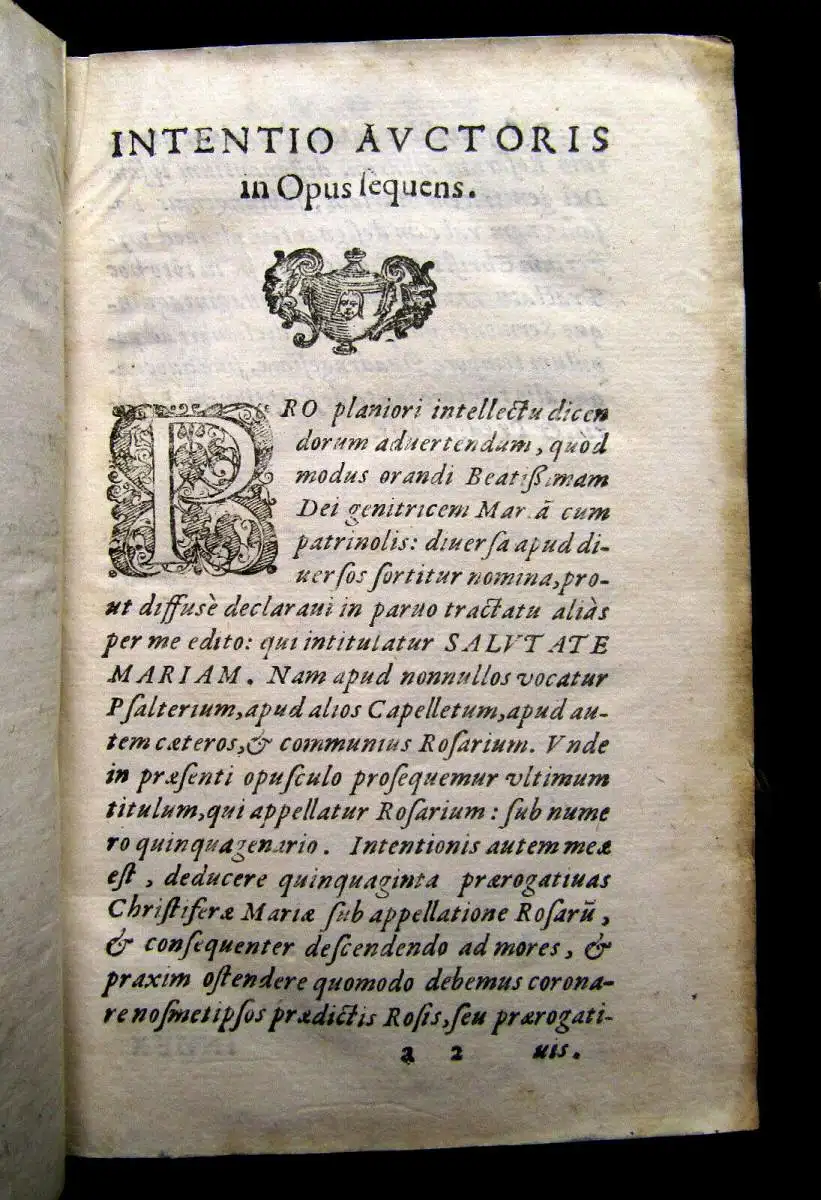 INTENTIO AVCTORIS
in Opus ſequens.
PRO planiori intellectu dicen
dorum aduertendam, quòd
modus orandi Beatiſsimam
Dei genitricem Mariā cum
patrinolis: diuerſa apud di-
uerſos ſortitur nomina, pro-
ut diffusè declaraui in paruo tractatu aliàs
per me edito: qui intitulatur SALVTATE
MARIAM. Nam apud nonnullos vocatur
Pſalterium, apud alios Capelletum, apud au-
tem cæteros, & communius Roſarium. Vnde
in præſenti opuſculo proſequemur vltimum
titulum, qui appellatur Roſarium: ſub nume
ro quinquagenario. Intentionis autem meæ
eſt, deducere quinquaginta prærogatiuas
Chriſtiferæ Mariæ ſub appellatione Roſarū,
& conſequenter deſcendendo ad mores, &
praxim oſtendere quomodo debemus corona-
re noſmetipſos prædictis Roſis, ſeu prærogati-
a 2 uis.